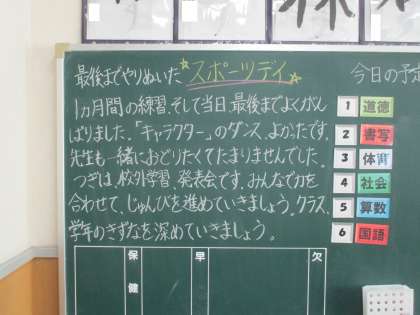 最後までやりぬいた☆スポーツデイ☆
1ヵ月間の練習、そして当日、最後までよくがん
ばりました。「キャラクター」のダンス、よかったです。
先生も一緒におどりたくてたまりませんでした。
つぎは、校外学習、発表会です。みんなで力を
合わせて、じゅんびを進めていきましょう。クラス、
学年のきずなを深めていきましょう。
今日の予定
1 道徳
2 書写
3 体育
4 社会
5 算数
6 国語
保健
早
欠